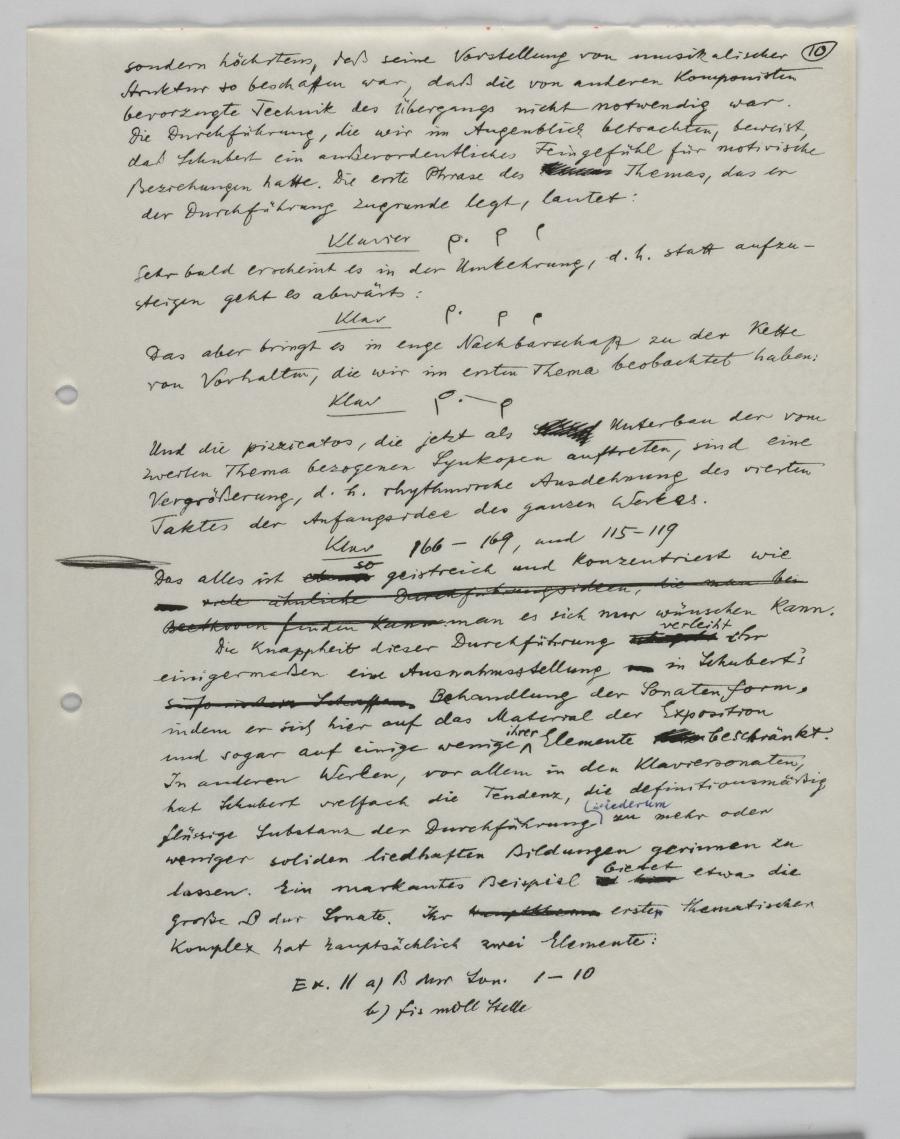 10
sondern höchstens, daß seine Vorstellung von musikalischer
Struktur so beschaffen war, daß die von anderen Komponisten
bevorzugte Technik des Übergangs nicht notwendig war.
Die Durchführung, die wir im Augenblick betrachten, beweist,
daß Schubert ein außerordentliches Feingefühl für motivische
Beziehungen hatte. Die erste Phrase des Themas, das er
der Durchführung zugrunde legt, lautet:
Klavier
Sehr bald erscheint es in der Umkehrung, d.h. statt aufzu-
steigen geht es abwärts:
Klav
Das aber bringt es in enge Nachbarschaft zu der Kette
von Vorhalten, die wir im ersten Thema beobachtet haben:
Klav
Und die pizzicatos, die jetzt als Unterbau der vom
zweiten Thema bezogenen Synkopen auftreten, sind eine
Vergrößerung, d.h. rhythmische Ausdehnung des vierten
Taktes der Anfangsidee des ganzen Werkes.
Klav 166 – 169, und 115–119
Das alles ist so geistreich und konzentriert wie
viele ähnliche Durchführungsideen, die man bei
Beethoven finden kann. man es sich nur wünschen kann.
Die Knappheit dieser Durchführung verleiht ihr
einigermaßen eine Ausnahmsstellung in Schubert's
Behandlung der Sonatenform,
indem er sich hier auf das Material der Exposition
und sogar auf einige wenige ihrer Elemente beschränkt.
In anderen Werken, vor allem in den Klaviersonaten,
hat Schubert vielfach die Tendenz, die definitionsmäßig
flüssige Substanz der Durchführung (wiederum) zu mehr oder
weniger soliden liedhaften Bildungen gerinnen zu
lassen. Ein markantes Beispiel bietet etwa die
große B dur Sonate. Ihr ersten thematischer
Komplex hat hauptsächlich zwei Elemente:
Ex. 11 a) B dur Son. 1–10
b) fis moll Stelle